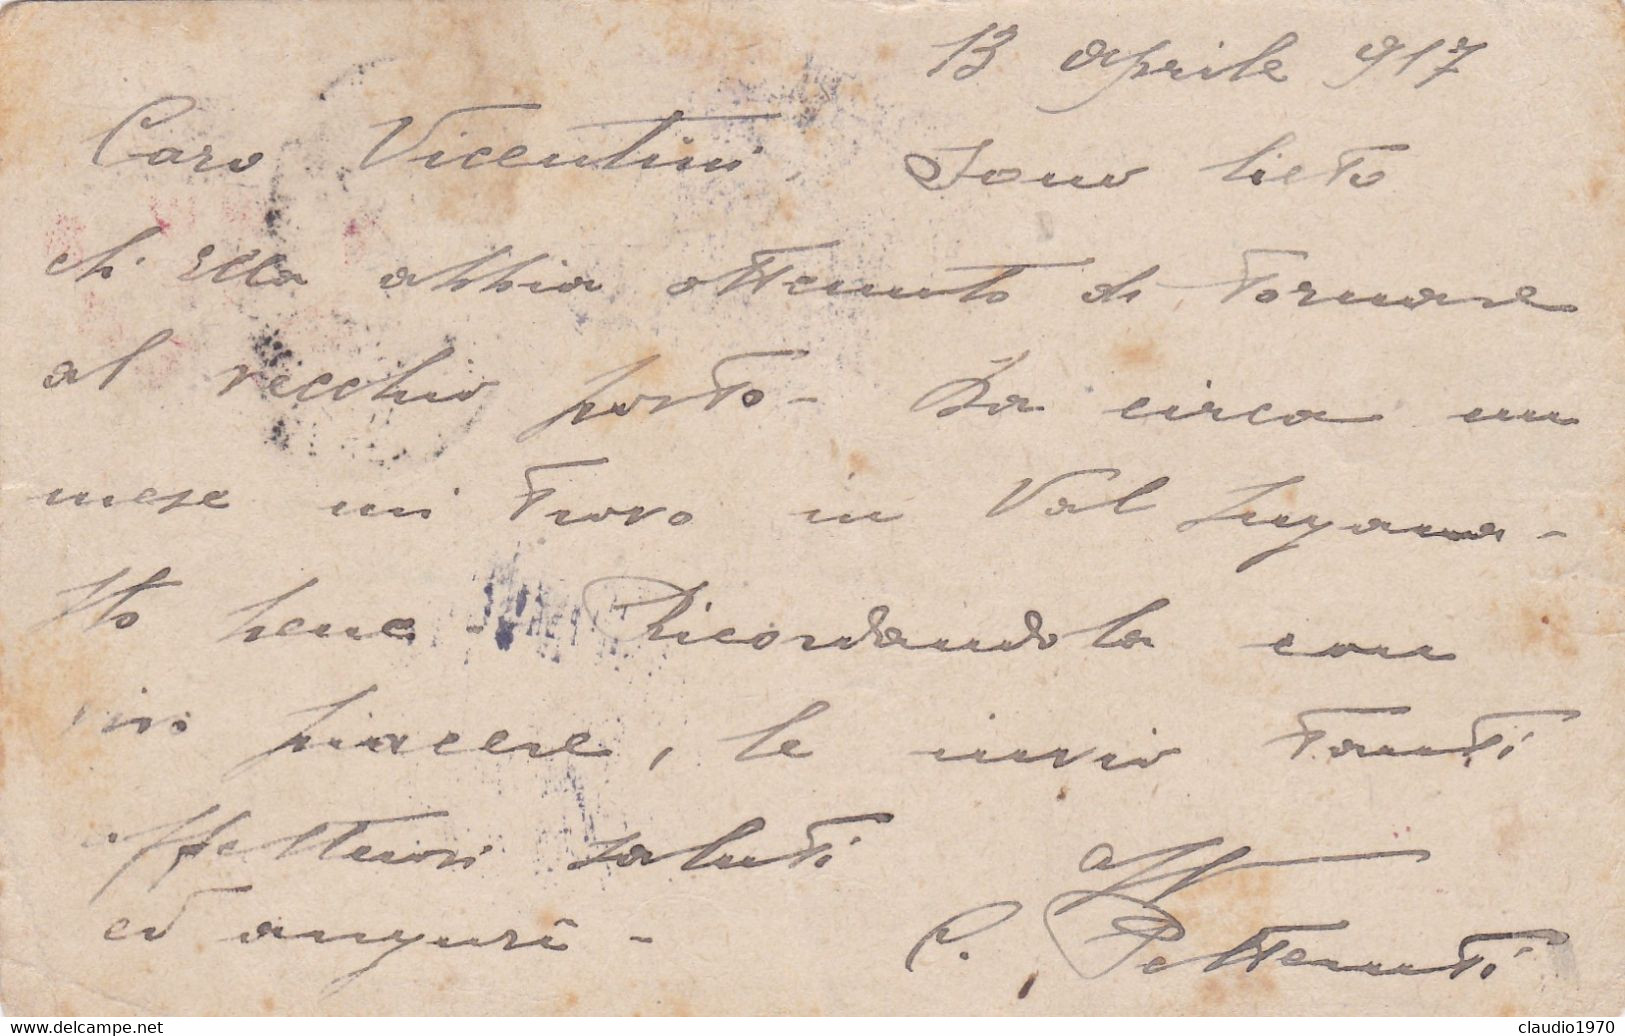 13 aprile 917
Caro Vicentini, Sono lieto
ch'Ella abbia ottenuto di tornare
al vecchio posto - Da circa un
mese mi trovo in Val Sugana -
Sto bene - Ricordandola con
vivo piacere, le invio tanti
affettuosi saluti aff
ed auguri - C. Pettenuti
delcampe.net
claudio1970